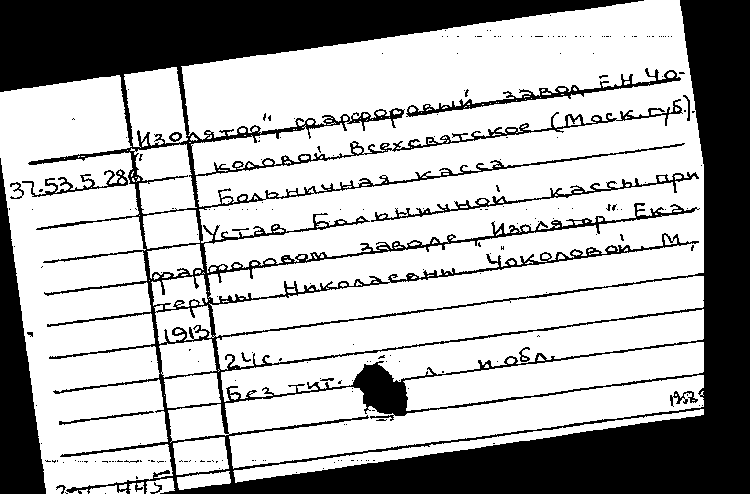 „Изолятор", фарфоровый завод Е.Н. Чо-
37.53.5.286
коловой. Всехсвятское (Моск. губ.).
Больничная касса.
Устав Больничной кассы при
фарфоровом заводе „Изолятор" Ека-
терины Николаевны Чоколовой. М.,
1913.
24 с.
Без тит. л. и обл.
445